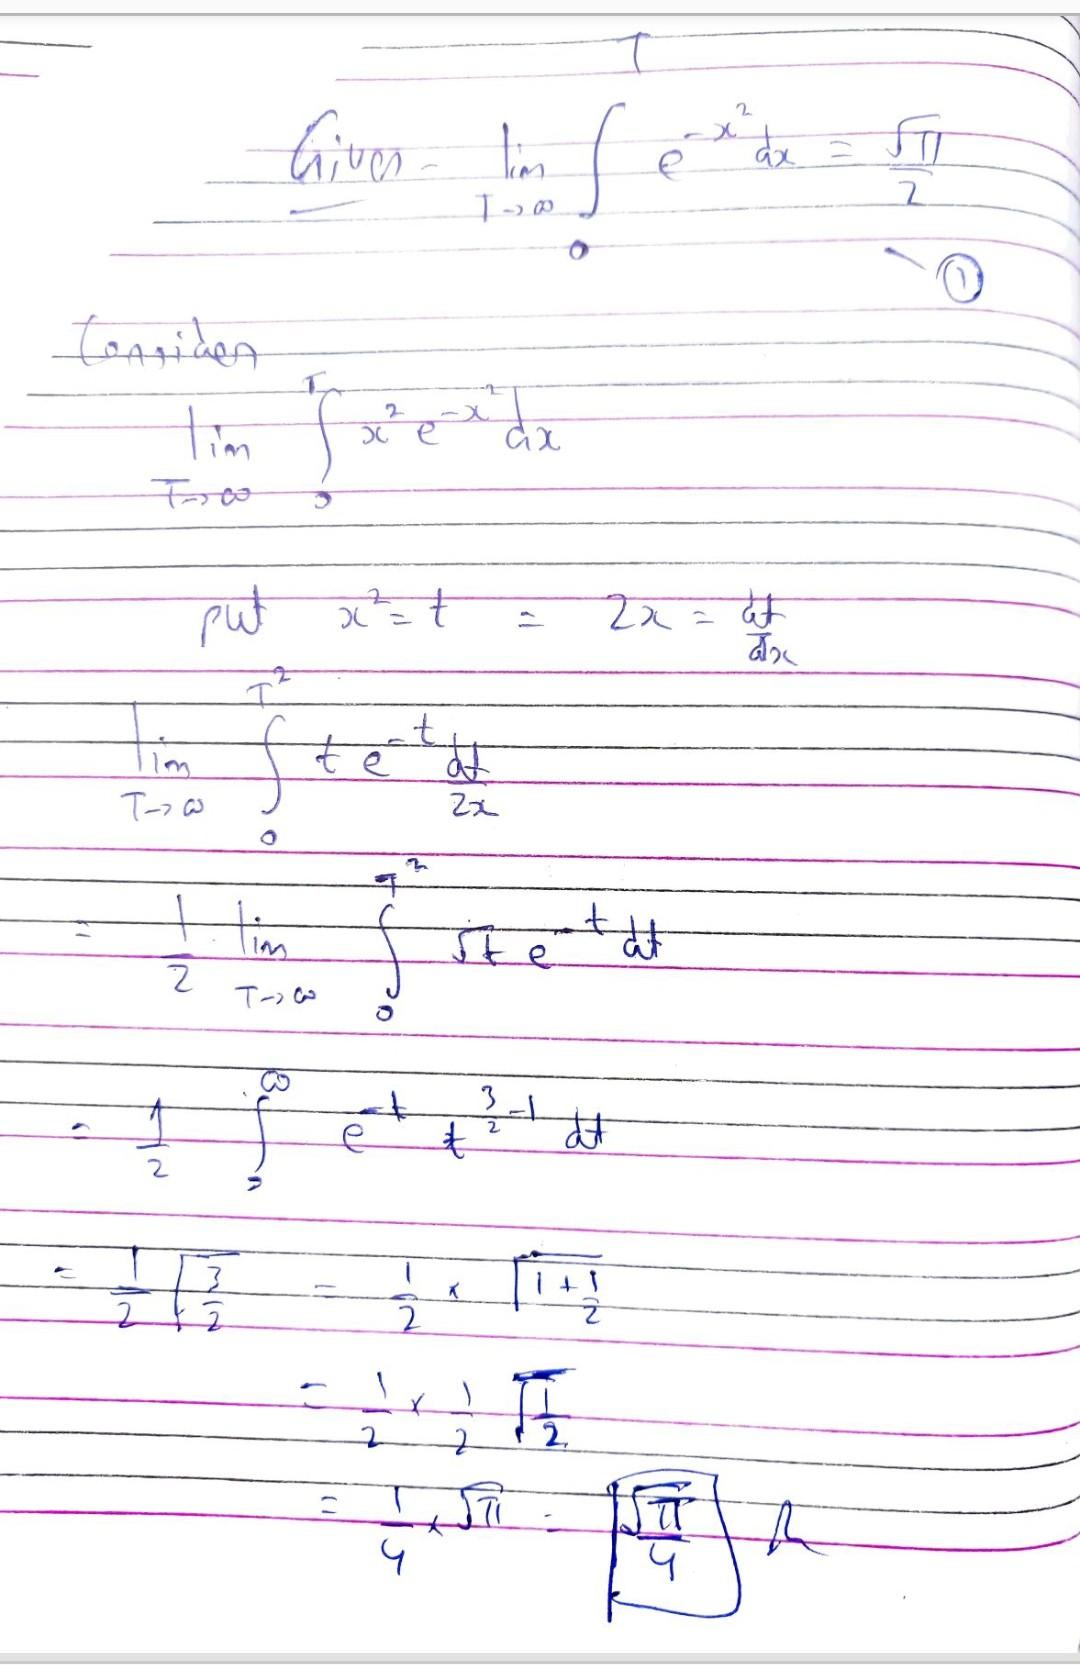 T
Given - lim ∫ e^{-x^2} dx = √π/2
T→∞ 0
①
Consider
lim_{T→∞} ∫_0^T x^2 e^{-x^2} dx
put x^2 = t = 2x = dt/dx
lim_{T→∞} ∫_0^{T^2} t e^{-t} dt/2x
= 1/2 lim_{T→∞} ∫_0^{T^2} √t e^{-t} dt
= 1/2 ∫_0^∞ e^{-t} t^{3/2 - 1} dt
= 1/2 Γ3/2 = 1/2 × Γ1+1/2
= 1/2 × 1/2 Γ1/2
= 1/4 × √π = √π/4